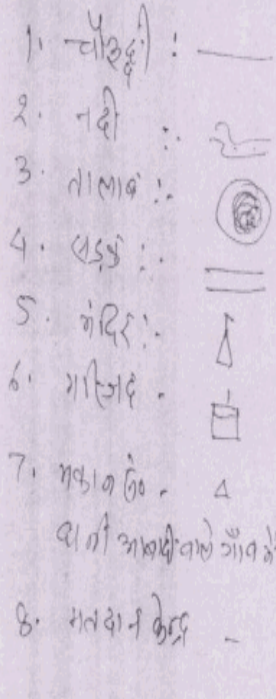 1. चौहद्दी :
2. नदी :.
3. तालाब :.
4. सड़क :.
5. मंदिर :.
6. मस्जिद -
7. मकान -
घनी आबादी वाले गाँव में
8. मतदान केन्द्र -